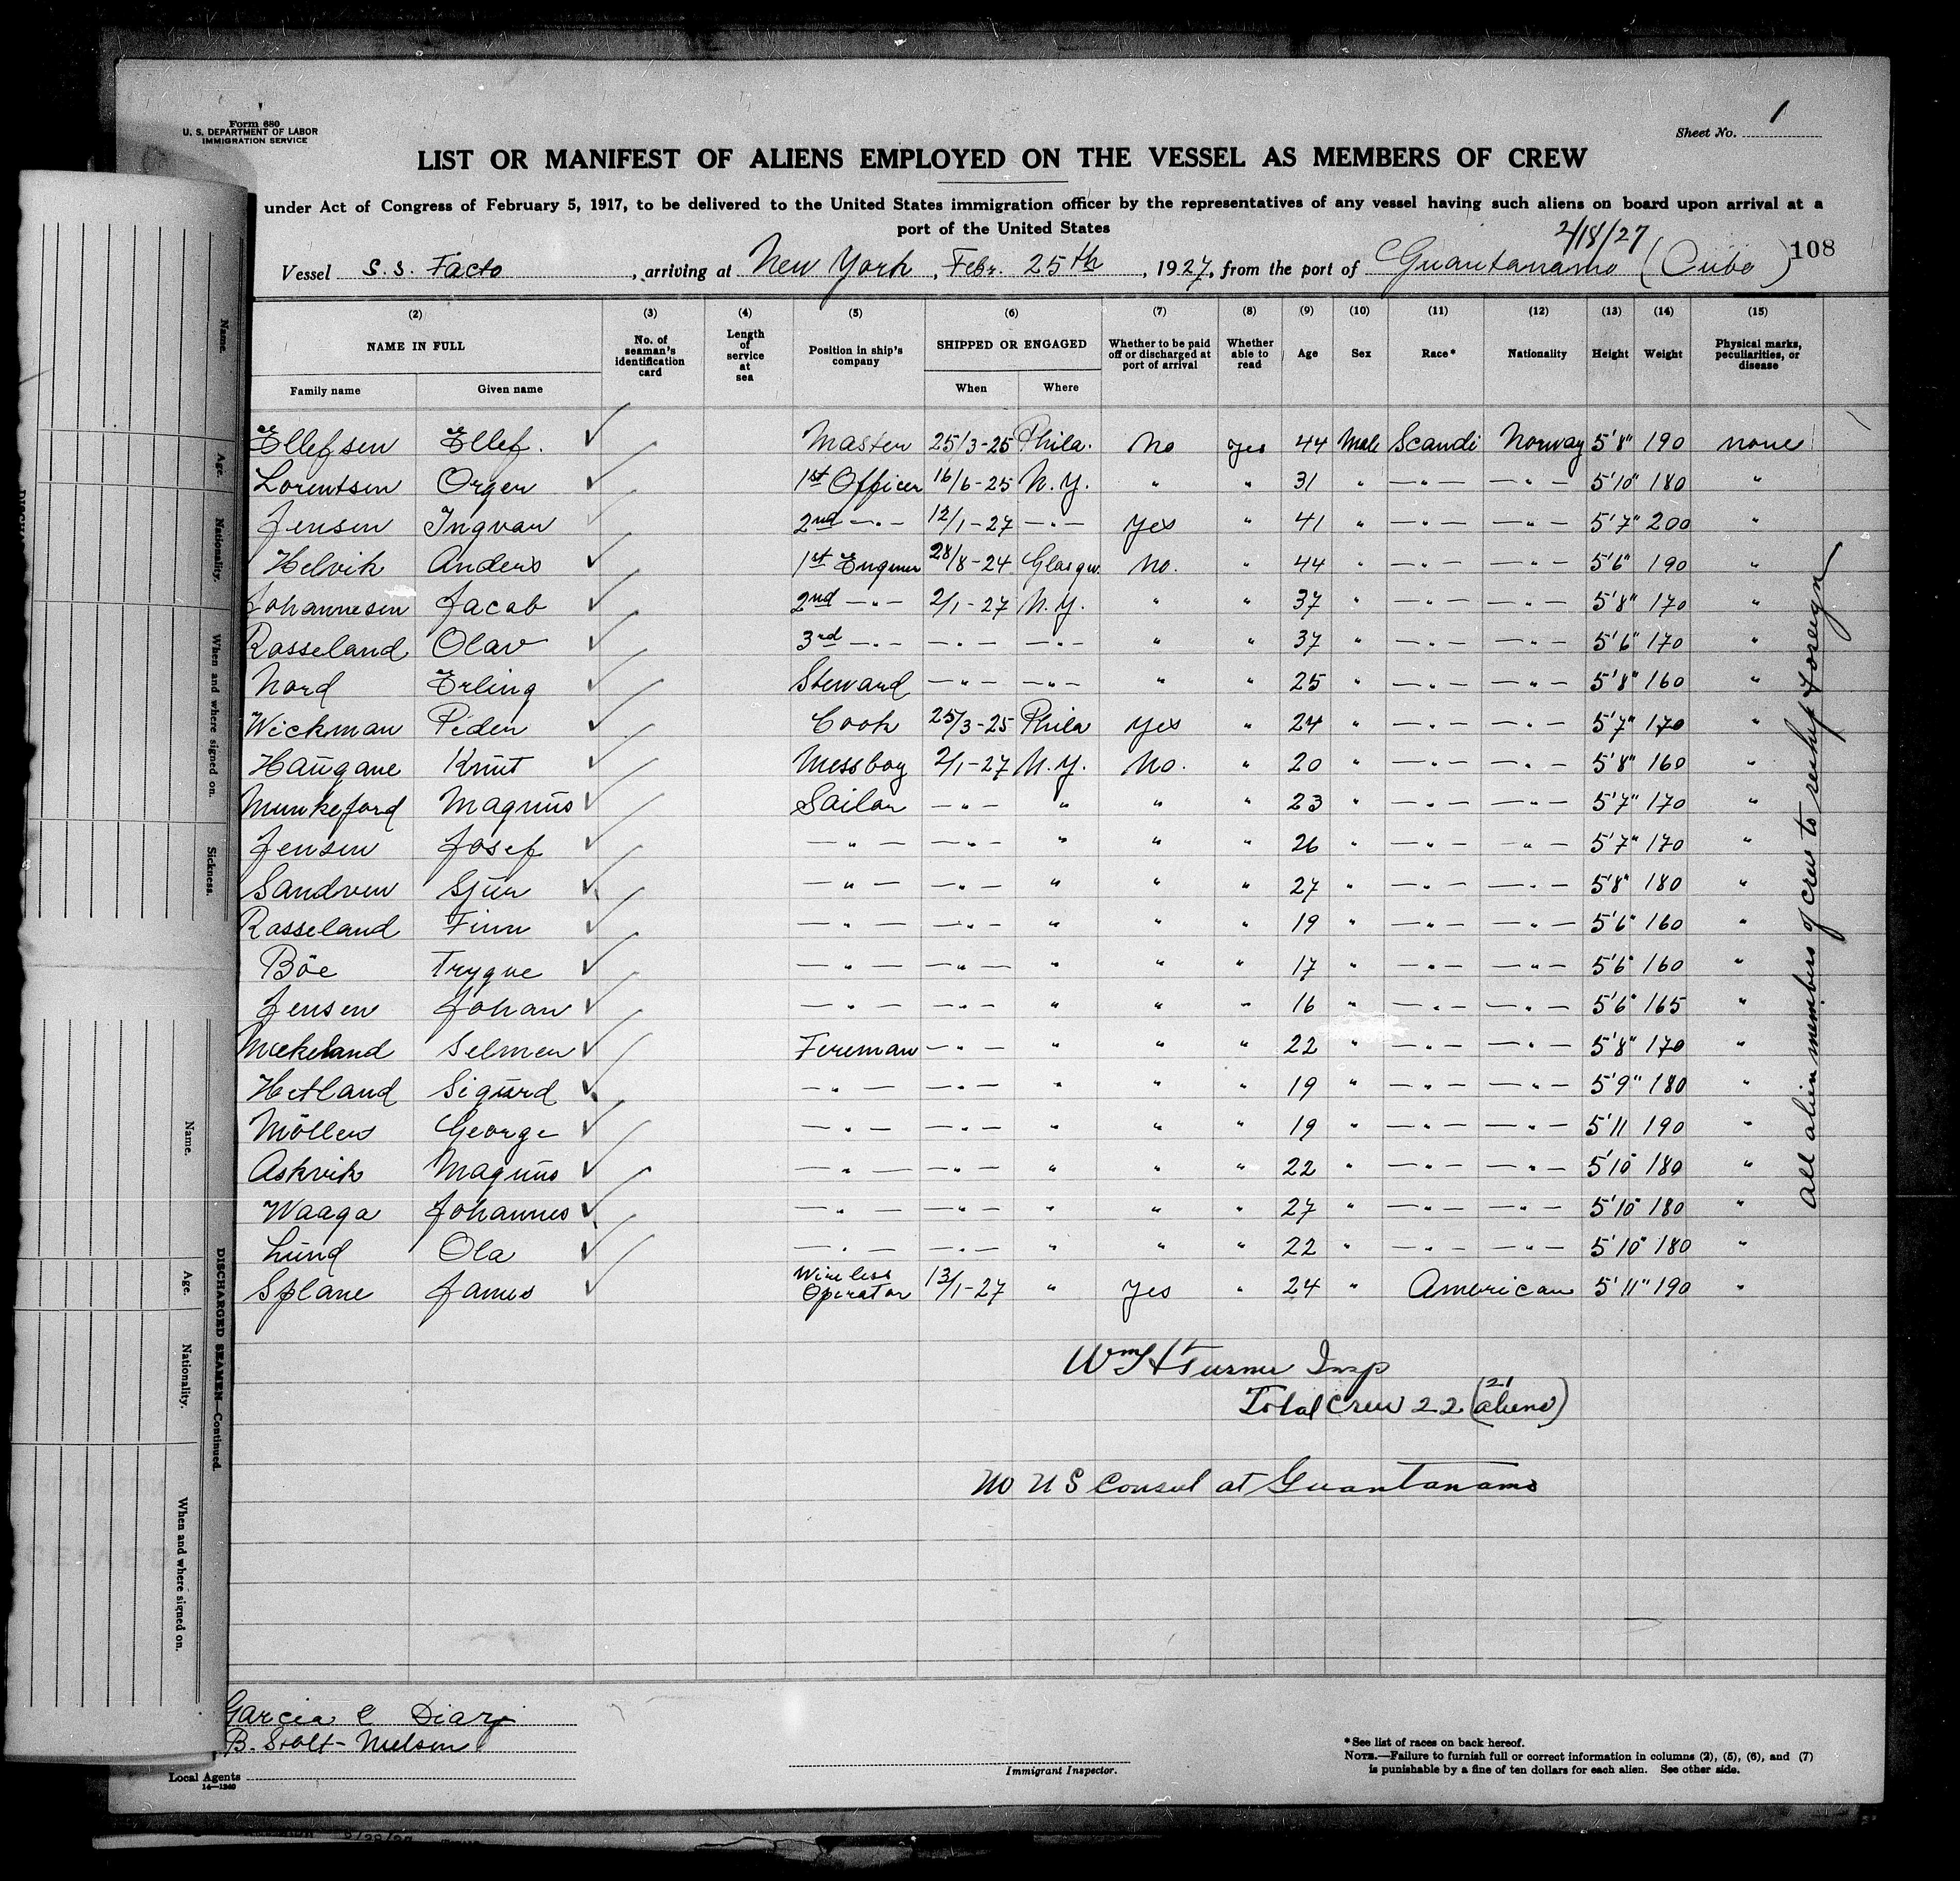 Form 680
U. S. DEPARTMENT OF LABOR
IMMIGRATION SERVICE
Sheet No. 1
LIST OR MANIFEST OF ALIENS EMPLOYED ON THE VESSEL AS MEMBERS OF CREW
under Act of Congress of February 5, 1917, to be delivered to the United States immigration officer by the representatives of any vessel having such aliens on board upon arrival at a
port of the United States
2/18/27
Vessel S. S. Facto, arriving at New York, Febr. 25th, 1927, from the port of Guantanamo (Cuba) 108
(2) (3) (4) (5) (6) (7) (8) (9) (10) (11) (12) (13) (14) (15)
NAME IN FULL No. of seaman's identification card Length of service at sea Position in ship's company SHIPPED OR ENGAGED Whether to be paid off or discharged at port of arrival Whether able to read Age Sex Race* Nationality Height Weight Physical marks, peculiarities, or disease
Family name Given name When Where
Ellefsen Ellef. ✓ Master 25/3-25 Phila. No yes 44 Male Scandi Norway 5'8" 190 none
Lorentsen Orger ✓ 1st Officer 16/6-25 N.Y. " " 31 " —"— —"— 5'10" 180 "
Jensen Ingvar ✓ 2nd —"— 12/1-27 —"— Yes " 41 " —"— —"— 5'7" 200 "
Helvik Anders ✓ 1st Enginer 28/8-24 Glasgw. No. " 44 " —"— —"— 5'6" 190 "
Johannesen Jacob ✓ 2nd —"— 2/1-27 N.Y. " " 37 " —"— —"— 5'8" 170 "
Rasseland Olav ✓ 3rd —"— —"— —"— " " 37 " —"— —"— 5'6" 170 "
Nord Erling ✓ Steward —"— —"— " " 25 " —"— —"— 5'8" 160 "
Wickman Peder ✓ Cook 25/3-25 Phila Yes " 24 " —"— —"— 5'7" 170 "
Haugane Knut ✓ Messboy 2/1-27 N.Y. No. " 20 " —"— —"— 5'8" 160 "
Munkejord Magnus ✓ Sailor —"— " " " 23 " —"— —"— 5'7" 170 "
Jensen Josef ✓ —"— —"— " " " 26 " —"— —"— 5'7" 170 "
Sandven Sjur ✓ —"— —"— " " " 27 " —"— —"— 5'8" 180 "
Rasseland Finn ✓ —"— —"— " " " 19 " —"— —"— 5'6" 160 "
Böe Trygve ✓ —"— —"— " " " 17 " —"— —"— 5'6" 160 "
Jensen Johan ✓ —"— —"— " " " 16 " —"— —"— 5'6" 165 "
Selmer ✓ Fireman —"— " " " 22 " —"— —"— 5'8" 170 "
Hetland Sigurd ✓ —"— —"— " " " 19 " —"— —"— 5'9" 180 "
Möller George ✓ —"— —"— " " " 19 " —"— —"— 5'11 190 "
Askvik Magnus ✓ —"— —"— " " " 22 " —"— —"— 5'10" 180 "
Waaga Johannes ✓ —"— —"— " " " 27 " —"— —"— 5'10" 180 "
Lund Ola ✓ —"— —"— " " " 22 " —"— —"— 5'10" 180 "
Splane James ✓ Wireless Operator 13/1-27 " Yes " 24 " American 5'11" 190 "
All alien members of crew to reship foreign
Wm H Turner Insp
Total Crew 22 (21 aliens)
No U S Consul at Guantanamo
Garcia & Diaz
B. Stolt-Nielsen
Local Agents
14—1240
Immigrant Inspector.
*See list of races on back hereof.
NOTE.—Failure to furnish full or correct information in columns (2), (5), (6), and (7)
is punishable by a fine of ten dollars for each alien. See other side.
Name.
Age.
Nationality.
When and where signed on.
Sickness.
DISCHARGED SEAMEN—Continued.
Name.
Age.
Nationality.
When and where signed on.